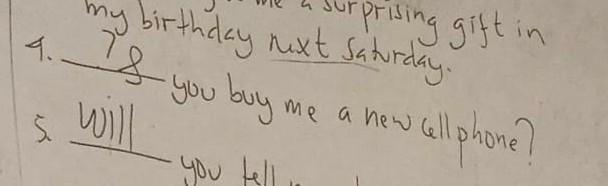 a surprising gift in
my birthday next Saturday.
4. you buy me a new cell phone?
5. Will you tell